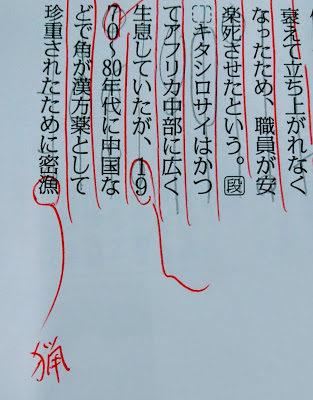 衰えて立ち上がれなく
なったため、職員が安
楽死させたという。段
キタシロサイはかつ
てアフリカ中部に広く
生息していたが、19
70、80年代に中国な
どで角が漢方薬として
珍重されたために密漁
猟